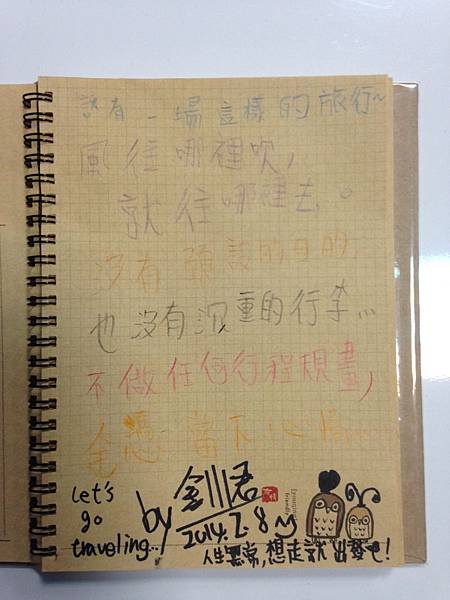 該有一場這樣的旅行~
風往哪裡吹,
就往哪裡去。
沒有預設的目的,
也沒有沉重的行李...
不做任何行程規畫,
全憑當下心情
Let's go traveling...
by 釗君
2014.2.8
人生無常,想走就出發吧!